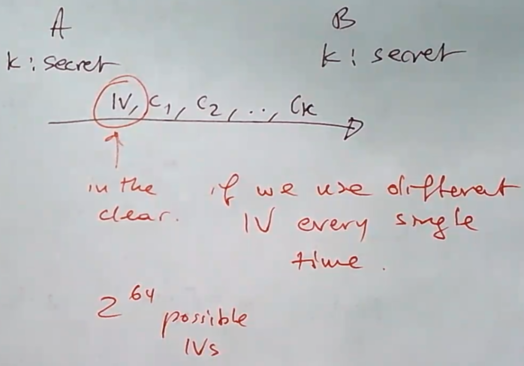 A
B
k: secret
k: secret
IV, C1, C2, .., CK
in the
clear.
if we use different
IV every single
time.
2^64 possible
IVs